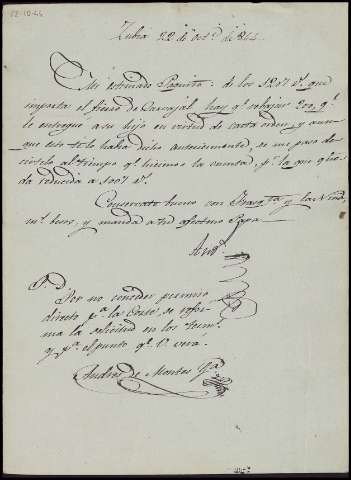 22-10-44
Zubia 22 de Oct.e de 844.
Mi estimado Paquito: de los 1207 r.s que
importa el fiado de Carvajal hay q.e rebajar 200, q.e
le entregue a su hijo en virtud de carta orden, y aun
que esto te lo habia dicho anteriormente, se me paso de
cirtelo al tiempo q.e hicimos la cuenta, p.r lo que que
da reducida a 1007 r.s
Conservate bueno con Frasq.ta y la Niña,
m.s besos, y manda a tu afectmo Papa
And.s
P.D.
Por no conceder permiso
directo p.a la Corte, se refor
ma la solicitud en los term.s
y p.a el punto q.e V. vera.
Andres de Montes